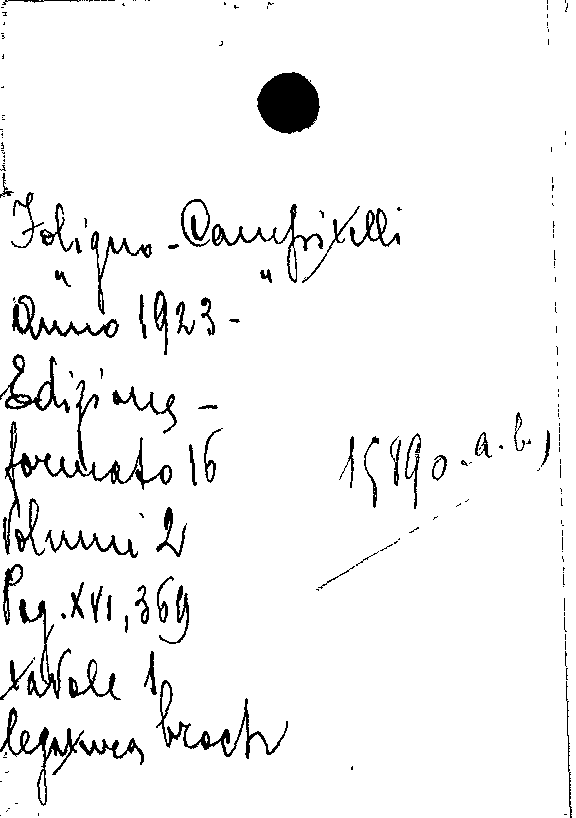 Foligno - Campitelli
" "
Anno 1923 -
Edizione -
formato 16
15890.a.b.)
Volumi 2
Pag. XVI, 369
tavole 1
legatura broch